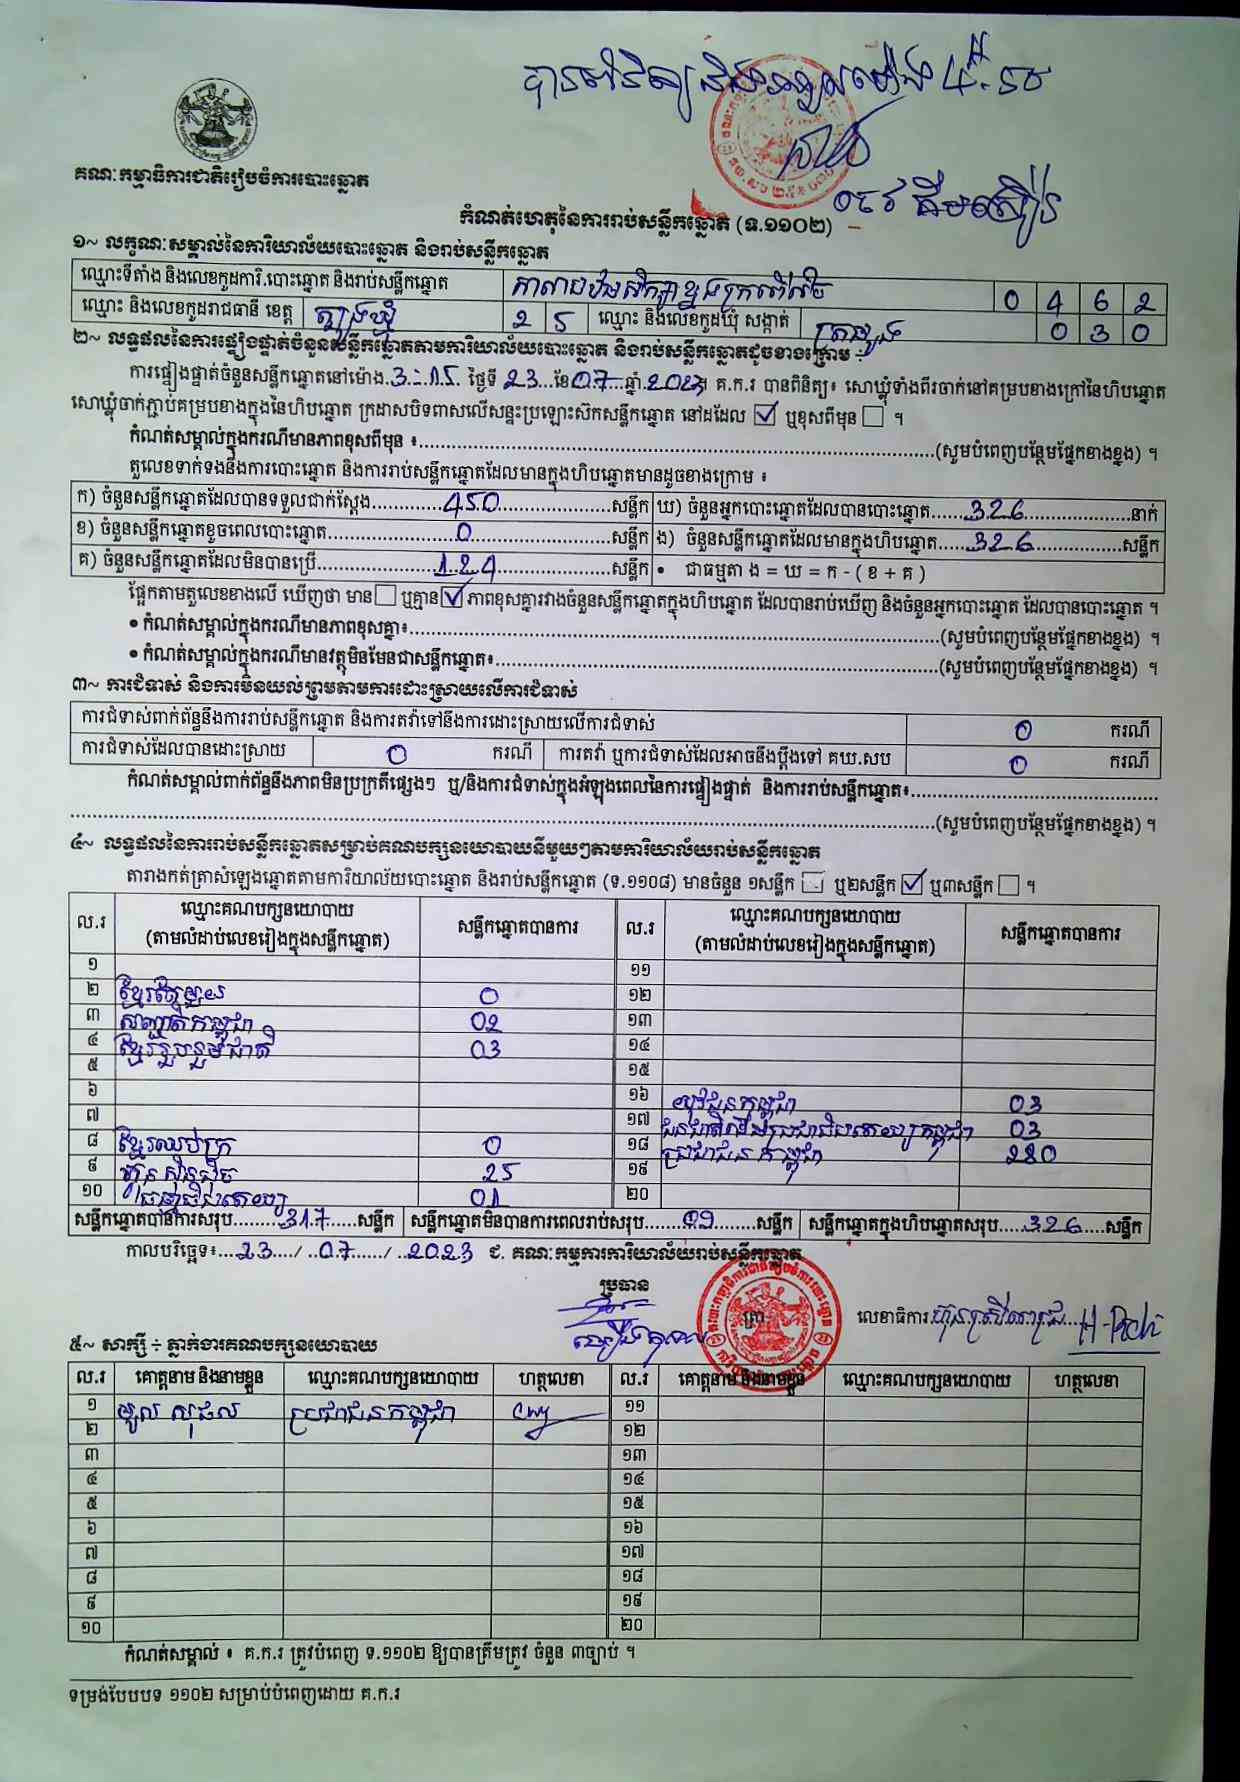 គណៈកម្មាធិការជាតិរៀបចំការបោះឆ្នោត
កំណត់ហេតុនៃការរាប់សន្លឹកឆ្នោត (ទ.១១០២)
១~ លក្ខណៈសម្គាល់នៃការិយាល័យបោះឆ្នោត និងរាប់សន្លឹកឆ្នោត
ឈ្មោះទីតាំង និងលេខកូដការិ.បោះឆ្នោត និងរាប់សន្លឹកឆ្នោត 0 4 6 2
ឈ្មោះ និងលេខកូដរាជធានី ខេត្ត ត្បូងឃ្មុំ 2 5 ឈ្មោះ និងលេខកូដឃុំ សង្កាត់ 0 3 0
២~ លទ្ធផលនៃការផ្ទៀងផ្ទាត់ចំនួនសន្លឹកឆ្នោតតាមការិយាល័យបោះឆ្នោត និងរាប់សន្លឹកឆ្នោតដូចខាងក្រោម ÷
ការផ្ទៀងផ្ទាត់ចំនួនសន្លឹកឆ្នោតនៅម៉ោង.3:15. ថ្ងៃទី 23...ខែ07...ឆ្នាំ.2023។ គ.ក.រ បានពិនិត្យ៖ សោឃ្លុំទាំងពីរចាក់នៅគម្របខាងក្រៅនៃហិបឆ្នោត
សោឃ្លុំចាក់ភ្ជាប់គម្របខាងក្នុងនៃហិបឆ្នោត ក្រដាសបិទពាសលើសន្ទះប្រឡោះស៊កសន្លឹកឆ្នោត នៅដដែល ☑ ឬខុសពីមុន ☐ ។
កំណត់សម្គាល់ក្នុងករណីមានភាពខុសពីមុន ៖...(សូមបំពេញបន្ថែមផ្នែកខាងខ្នង) ។
តួលេខទាក់ទងនឹងការបោះឆ្នោត និងការរាប់សន្លឹកឆ្នោតដែលមានក្នុងហិបឆ្នោតមានដូចខាងក្រោម ៖
ក) ចំនួនសន្លឹកឆ្នោតដែលបានទទួលជាក់ស្តែង...450...សន្លឹក ឃ) ចំនួនអ្នកបោះឆ្នោតដែលបានបោះឆ្នោត...326...នាក់
ខ) ចំនួនសន្លឹកឆ្នោតខូចពេលបោះឆ្នោត...0...សន្លឹក ង) ចំនួនសន្លឹកឆ្នោតដែលមានក្នុងហិបឆ្នោត...326...សន្លឹក
គ) ចំនួនសន្លឹកឆ្នោតដែលមិនបានប្រើ...124...សន្លឹក • ជាធម្មតា ង = ឃ = ក - ( ខ + គ )
ផ្អែកតាមតួលេខខាងលើ ឃើញថា មាន ☐ ឬគ្មាន ☑ ភាពខុសគ្នារវាងចំនួនសន្លឹកឆ្នោតក្នុងហិបឆ្នោត ដែលបានរាប់ឃើញ និងចំនួនអ្នកបោះឆ្នោត ដែលបានបោះឆ្នោត ។
• កំណត់សម្គាល់ក្នុងករណីមានភាពខុសគ្នា៖...(សូមបំពេញបន្ថែមផ្នែកខាងខ្នង) ។
• កំណត់សម្គាល់ក្នុងករណីមានវត្ថុមិនមែនជាសន្លឹកឆ្នោត៖...(សូមបំពេញបន្ថែមផ្នែកខាងខ្នង) ។
៣~ ការជំទាស់ និងការមិនយល់ព្រមតាមការដោះស្រាយលើការជំទាស់
ការជំទាស់ពាក់ព័ន្ធនឹងការរាប់សន្លឹកឆ្នោត និងការតវ៉ាទៅនឹងការដោះស្រាយលើការជំទាស់ 0 ករណី
ការជំទាស់ដែលបានដោះស្រាយ 0 ករណី ការតវ៉ា ឬការជំទាស់ដែលអាចនឹងប្តឹងទៅ គឃ.សប 0 ករណី
កំណត់សម្គាល់ពាក់ព័ន្ធនឹងភាពមិនប្រក្រតីផ្សេងៗ ឬ/និងការជំទាស់ក្នុងអំឡុងពេលនៃការផ្ទៀងផ្ទាត់ និងការរាប់សន្លឹកឆ្នោត៖...
...(សូមបំពេញបន្ថែមផ្នែកខាងខ្នង) ។
៤~ លទ្ធផលនៃការរាប់សន្លឹកឆ្នោតសម្រាប់គណបក្សនយោបាយនីមួយៗតាមការិយាល័យរាប់សន្លឹកឆ្នោត
តារាងកត់ត្រាសំឡេងឆ្នោតតាមការិយាល័យបោះឆ្នោត និងរាប់សន្លឹកឆ្នោត (ទ.១១០៨) មានចំនួន ១សន្លឹក ☐ ឬ២សន្លឹក ☑ ឬ៣សន្លឹក ☐ ។
ល.រ ឈ្មោះគណបក្សនយោបាយ (តាមលំដាប់លេខរៀងក្នុងសន្លឹកឆ្នោត) សន្លឹកឆ្នោតបានការ ល.រ ឈ្មោះគណបក្សនយោបាយ (តាមលំដាប់លេខរៀងក្នុងសន្លឹកឆ្នោត) សន្លឹកឆ្នោតបានការ
១ ១១
២ 0 ១២
៣ 02 ១៣
៤ ខ្មែររួបរួមជាតិ 03 ១៤
៥ ១៥
៦ ១៦ យុវជនកម្ពុជា 03
៧ ១៧ 03
៨ ខ្មែរឈប់ក្រ 0 ១៨ ប្រជាជនកម្ពុជា 280
៩ ហ៊្វុនស៊ិនប៉ិច 25 ១៩
១០ 01 ២០
សន្លឹកឆ្នោតបានការសរុប...317...សន្លឹក សន្លឹកឆ្នោតមិនបានការពេលរាប់សរុប...09...សន្លឹក សន្លឹកឆ្នោតក្នុងហិបឆ្នោតសរុប...326...សន្លឹក
កាលបរិច្ឆេទ៖...23.../...07.../...2023 ជ. គណៈកម្មការការិយាល័យរាប់សន្លឹកឆ្នោត
ប្រធាន
លេខាធិការ
៥~ សាក្សី ÷ ភ្នាក់ងារគណបក្សនយោបាយ
ល.រ គោត្តនាម និងនាមខ្លួន ឈ្មោះគណបក្សនយោបាយ ហត្ថលេខា ល.រ គោត្តនាម និងនាមខ្លួន ឈ្មោះគណបក្សនយោបាយ ហត្ថលេខា
១ ប្រជាជនកម្ពុជា ១១
២ ១២
៣ ១៣
៤ ១៤
៥ ១៥
៦ ១៦
៧ ១៧
៨ ១៨
៩ ១៩
១០ ២០
កំណត់សម្គាល់ ៖ គ.ក.រ ត្រូវបំពេញ ទ.១១០២ ឱ្យបានត្រឹមត្រូវ ចំនួន ៣ច្បាប់ ។
ទម្រង់បែបបទ ១១០២ សម្រាប់បំពេញដោយ គ.ក.រ